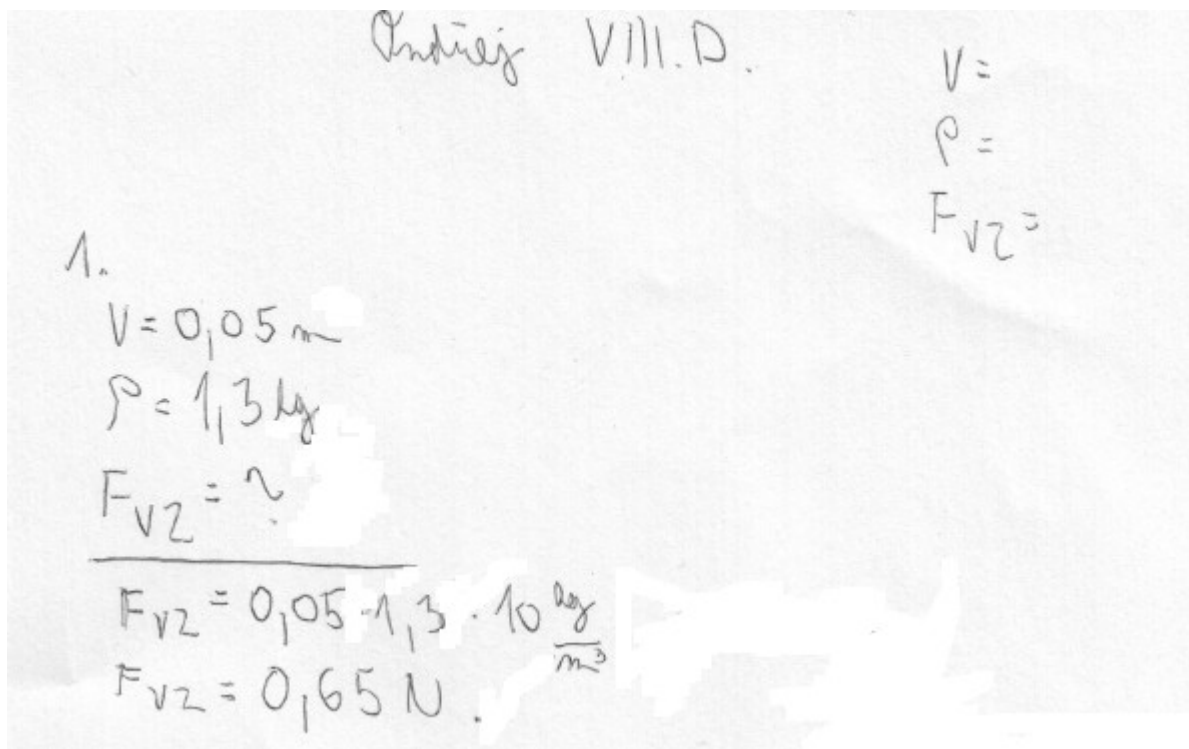 Ondřej VIII. D.
V =
ρ =
F_VZ =
1.
V = 0,05 m
ρ = 1,3 kg
F_VZ = ?
F_VZ = 0,05 · 1,3 · 10 kg/m³
F_VZ = 0,65 N.